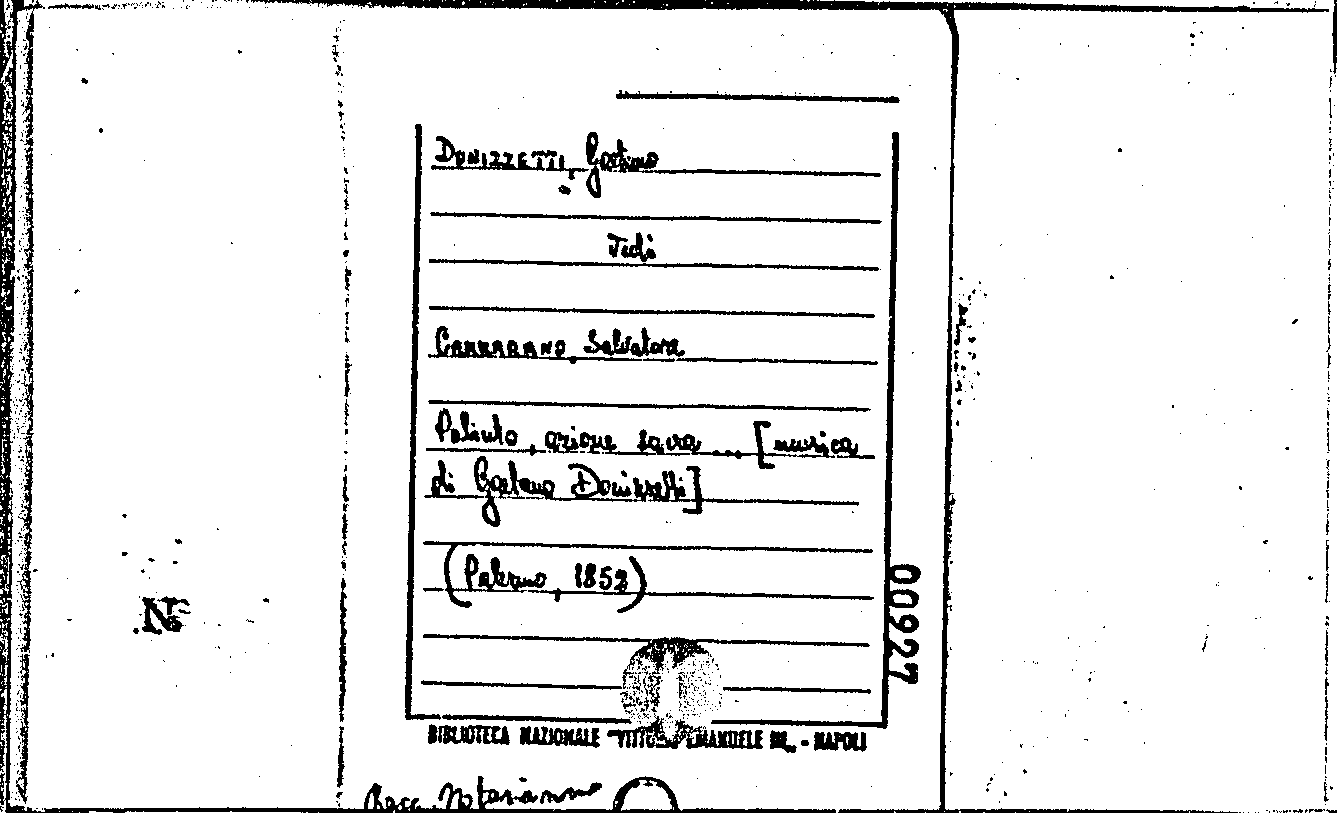 DONIZZETTI, Gaetano
Vedi
CAMMARANO, Salvatore
Poliuto, azione sacra ... [musica
di Gaetano Donizzetti]
(Palermo, 1852)
00927
BIBLIOTECA NAZIONALE "VITTORIO EMANUELE III„ - NAPOLI
Racc. Notarianno
Nº